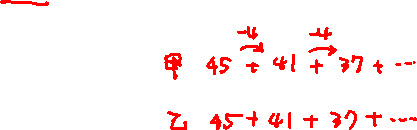 -4 -4
甲 45 + 41 + 37 + ...
乙 45 + 41 + 37 + ...